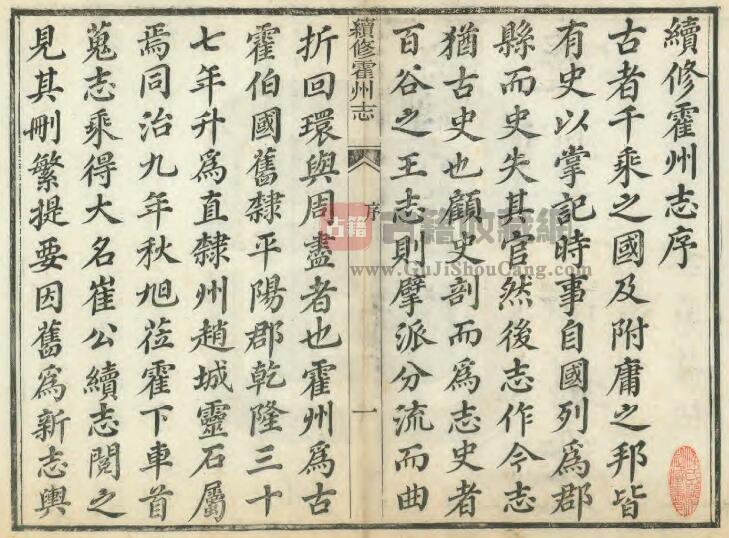 續修霍州志序
古者千乘之國及附庸之邦皆
有史以掌記時事自國列爲郡
縣而史失其官然後志作今志
猶古史也顧史剖而爲志史者
百谷之王志則擘派分流而曲
續修霍州志
序
一
折回環與周盡者也霍州爲古
霍伯國舊隸平陽郡乾隆三十
七年升爲直隸州趙城靈石屬
焉同治九年秋旭莅霍下車首
蒐志乘得大名崔公續志閱之
見其刪繁提要因舊爲新志輿
古籍
古籍收藏網
www.GuJiShouCang.com